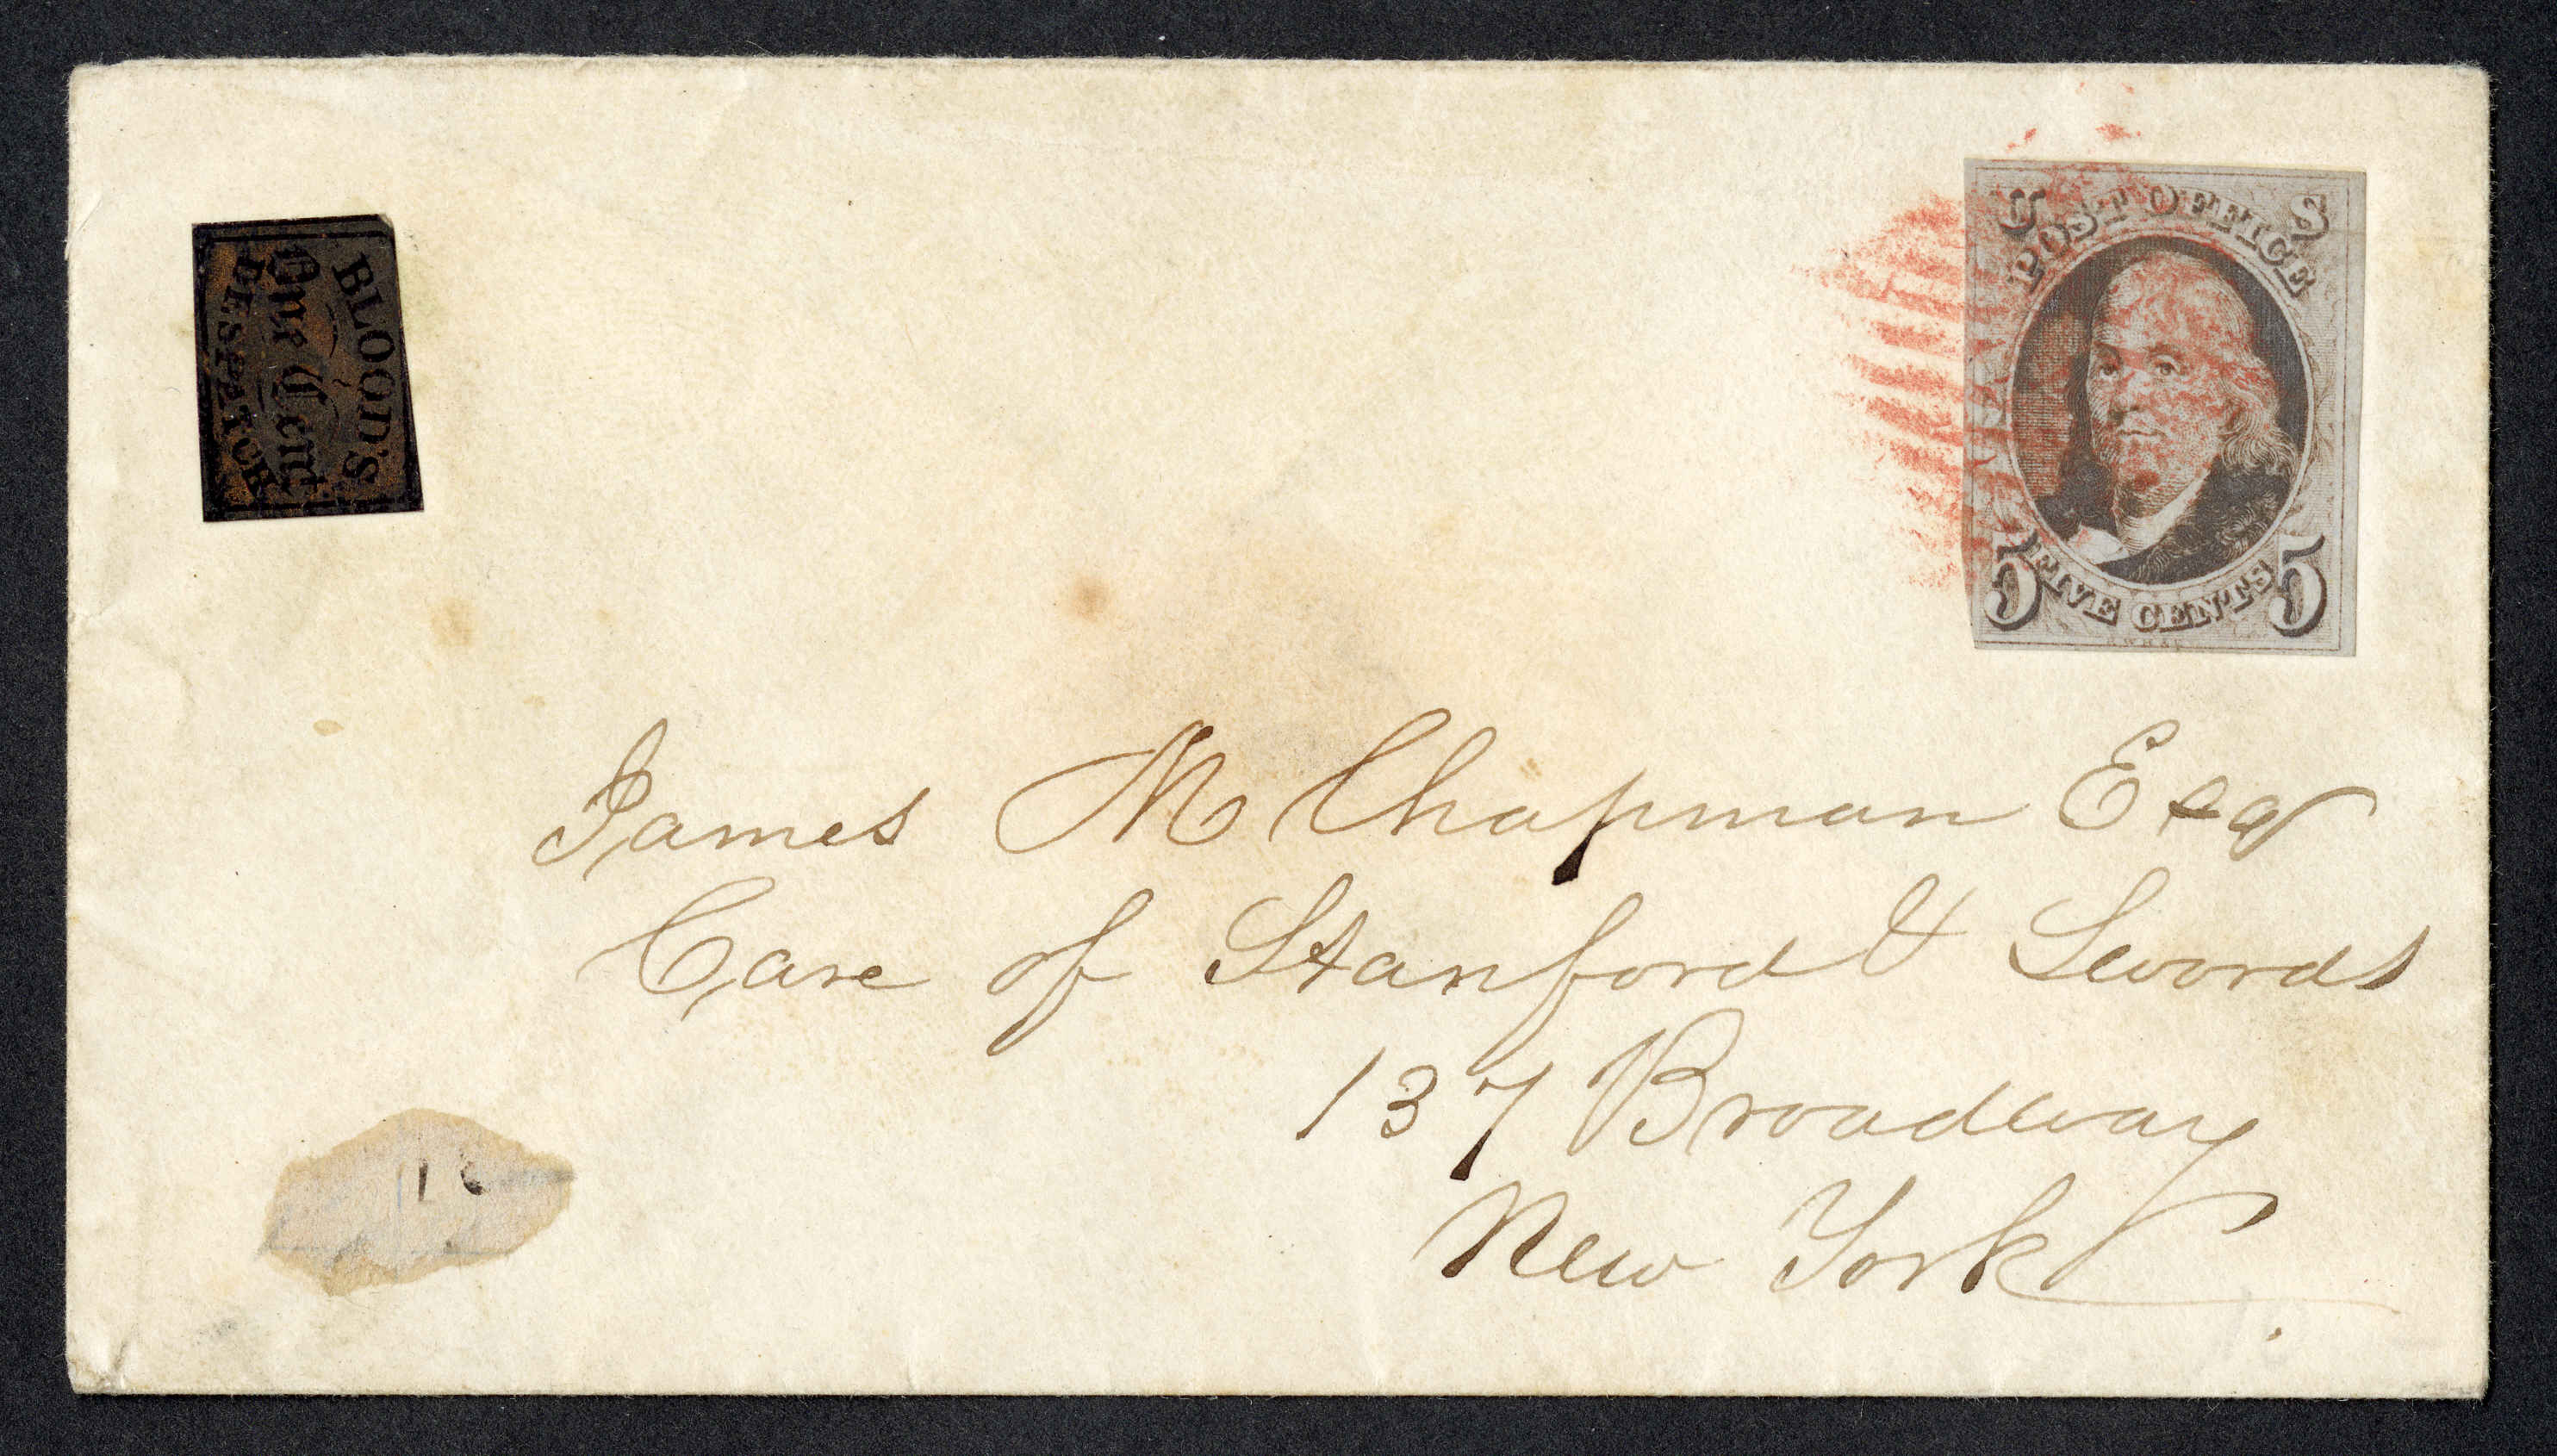 BLOOD'S
One Cent
DESPATCH
U S
POST OFFICE
5 FIVE CENTS 5
James M Chapman Esq
Care of Stanford & Swords
137 Broadway
New York